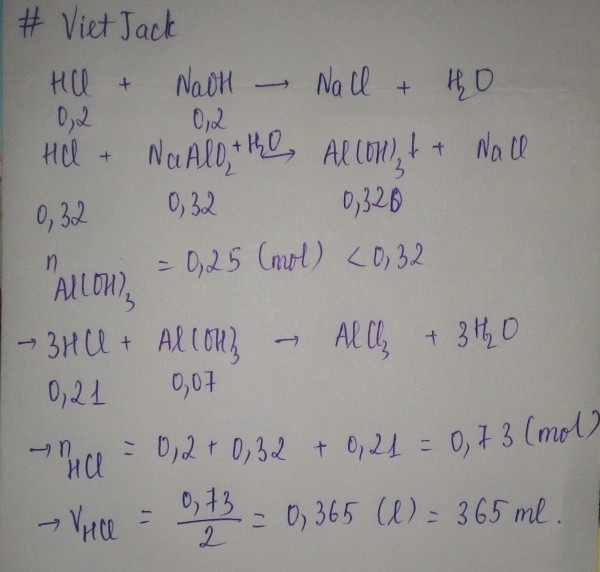 # VietJack
HCl + NaOH → NaCl + H₂O
0,2 0,2
HCl + NaAlO₂ + H₂O → Al(OH)₃↓ + NaCl
0,32 0,32 0,320
n Al(OH)₃ = 0,25 (mol) < 0,32
→ 3HCl + Al(OH)₃ → AlCl₃ + 3H₂O
0,21 0,07
→ n HCl = 0,2 + 0,32 + 0,21 = 0,73 (mol)
→ V HCl = 0,73/2 = 0,365 (l) = 365 ml.